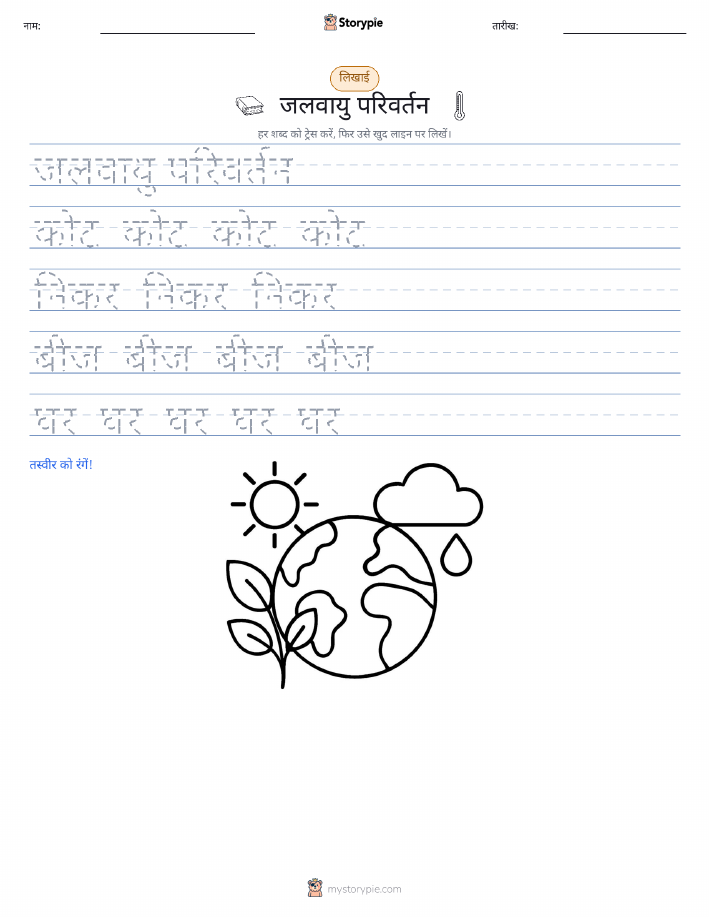 नाम:
Storypie
तारीख:
लिखाई
जलवायु परिवर्तन
हर शब्द को ट्रेस करें, फिर उसे खुद लाइन पर लिखें।
जलवायु परिवर्तन
कोट कोट कोट कोट
निकर निकर निकर
बीज बीज बीज बीज
घर घर घर घर घर
तस्वीर को रंगें!
mystorypie.com